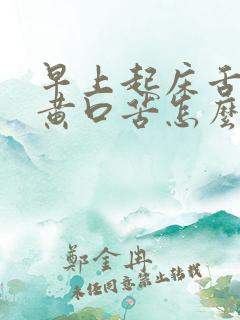 早上起床舌
黄口苦怎麼
鄭金冉
未经同意禁止转载